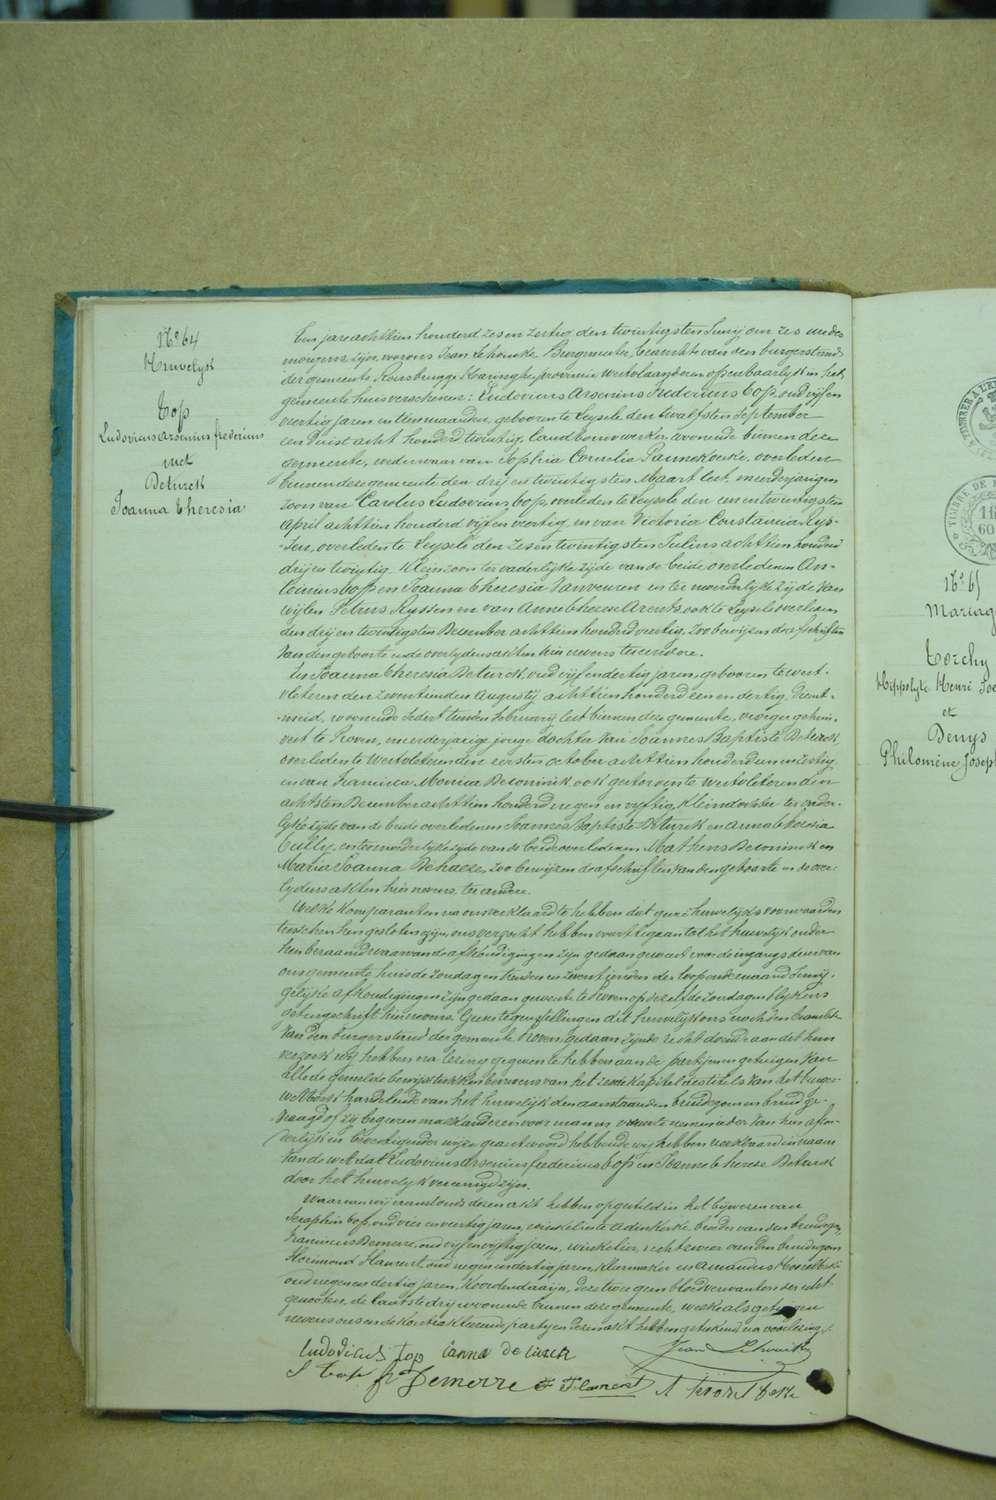 N.º 64
Huwelyk
Top
Ludovicus arsenius frederius
met
Deturck
Joanna theresia
Ten jare achttien honderd zes en zestig den twintigsten Junij om zes ure des
morgens zijn voor ons Jean Lehoucke Burgmeester beambte van den burgerstand
der gemeente Rousbrugge Haringhe provincie Westvlaanderen openbaarlijk in het
gemeente huis verschenen: Ludovicus Arsenius Frederius top, oud vijf en
veertig jaren en tien maanden, geboren te Leysele den twaelfsten September
een duist acht honderd twintig, landbouwwerker, wonende binnen deze
gemeente, weduwaar van Sophia Cornelia Pannekoucke, overleden
binnen deze gemeente den drij en twintigsten Maart lest, meerderjarigen
zoon van Carolus Ludovicus top, overleden te Leysele den een en twintigsten
april achttien honderd vijf en veertig, en van Victoria Constancia Rys-
-sen, overleden te Leysele den zes en twintigsten Julius achttien honderd
drij en twintig. Kleinzoon ter vaderlijke zijde van de beide overledenen An-
tonius top en Joanna theresia Vanveuren en ter moederlijke zijde van
wijlen Petrus Ryssen en van Anne therese Arents, ook te Leysele overleden
den drij en twintigsten December achttien honderd veertig, zoo bewijzen de afschriften
van den geboorte en de overlydens akten hier nevens ter eendere.
En Joanna theresia Deturck, oud vijf en dertig jaren, geboren te West-
vleteren den zeventienden Augusty achttien honderd een en dertig, Dienst-
-meid, wonende sedert tienden february lest binnen deze gemeente, vroeger gehuis-
vest te Proven, meerderjarige jonge dochter van Joannes Baptiste Deturck,
overleden te Westvleteren den eersten october achttien honderd een en veertig,
en van Francisca Monica Deconinck ook gestorven te Westvleteren den
achtsten December achttien honderd negen en vyftig, kleindochter ter vader-
lyke zijde van de beide overledenen Joannes Baptiste Deturck en anna theresia
Cully, en ter moederlyke zijde van de beide overledenen Matheus Deconinck en
Maria Joanna Dehaeze, zoo bewijzen de afschriften van den geboorte en de over-
lydens akten hier nevens ter andere.
Welke komparanten na ons verklaard te hebben dat geene huwelijks voorwaarden
tusschen hen gesloten zijn, ons verzocht hebben voort te gaan tot het huwelijk onder
hen beraamd waarvan de afkondigingen zijn gedaan geweest voor de ingangs deur van
ons gemeente huis de zondagen tienden en zeventienden der loopende maand Junij,
gelijke afkondigingen zijn gedaan geweest te Proven op dezelfde zondagen blykens
getuigschrift hier nevens. Geene tegenstellingen dit huwelijk ons noch den beambte
van den burgerstand der gemeente Proven gedaan zijnde recht doende aan dit hun
verzoek wij hebben na lezing gegeven te hebben aan de partijen en getuigen van
alle de gemelde bewijsstukken benevens van het zesde kapitel des titels van het burger
wetboek handelende van het huwelijk den aanstaanden bruidegom en bruid ge-
vraagd of zij begeeren malkanderen voor man en vrouw te nemen ieder van hun afzon-
derlijk en bevestigender wijze geantwoord hebbende wij hebben verklaard in naam
van de wet dat Ludovicus Arsenius frederius top en Joanna therese Deturck
door het huwelijk vereenigd zijn.
Waarvan wij aanstonds dezen akt hebben opgesteld in het bijwezen van
Seraphin top, oud vier en veertig jaren, winkelier te adinkerke broeder van den bruidegom
Franciscus Demerre, oud vijf en vijftig jaren, winkelier, rechtzweer van den bruidegom
Floremond Flaurent, oud negen en dertig jaren, kleermaker en amandus Hoorelbeke
oud negen en dertig jaren, koordendraaijer, deze twee geen bloedverwanten der echt-
genooten, de laatste drij wonende binnen deze gemeente, welke als getuigen
nevens ons en de kontrakteerende partyen dezen akt hebben geteekend na voorlezing.
Ludovicus top Canna de turck Jean Lehoucke
S top fr Demerre F Flaurent A hoorelbeke
N.º 65
Mariage
Torchy
Hippolyte Henri
et
Denys
Philomène
TIMBRE DE